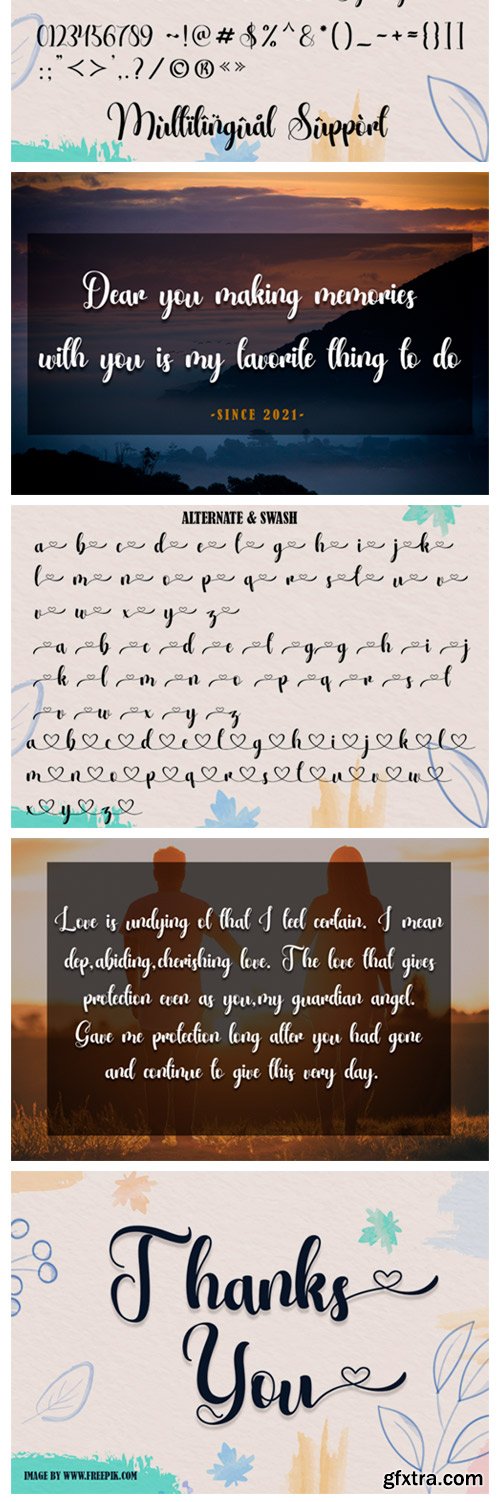 0123456789 ~!@#$%^&*()_-+={}[]
:;"<>',.?/©®«»
Mùltilíngûál Sûppòrt
Dear you making memories
with you is my favorite thing to do
-SINCE 2021-
ALTERNATE & SWASH
a b c d e f g h i j k
l m n o p q r s t u v
v w x y z
a b c d e f g g h i j
k l m n o p q r s t
v w x y z
a b c d e f g h i j k l
m n o p q r s t u v w
x y z
Love is undying of that I feel certain. I mean
dep,abiding,cherishing love. The love that gives
protection even as you,my guardian angel.
Gave me protection long after you had gone
and continue to give this very day.
Thanks
You
IMAGE BY WWW.FREEPIK.COM
gfxtra.com